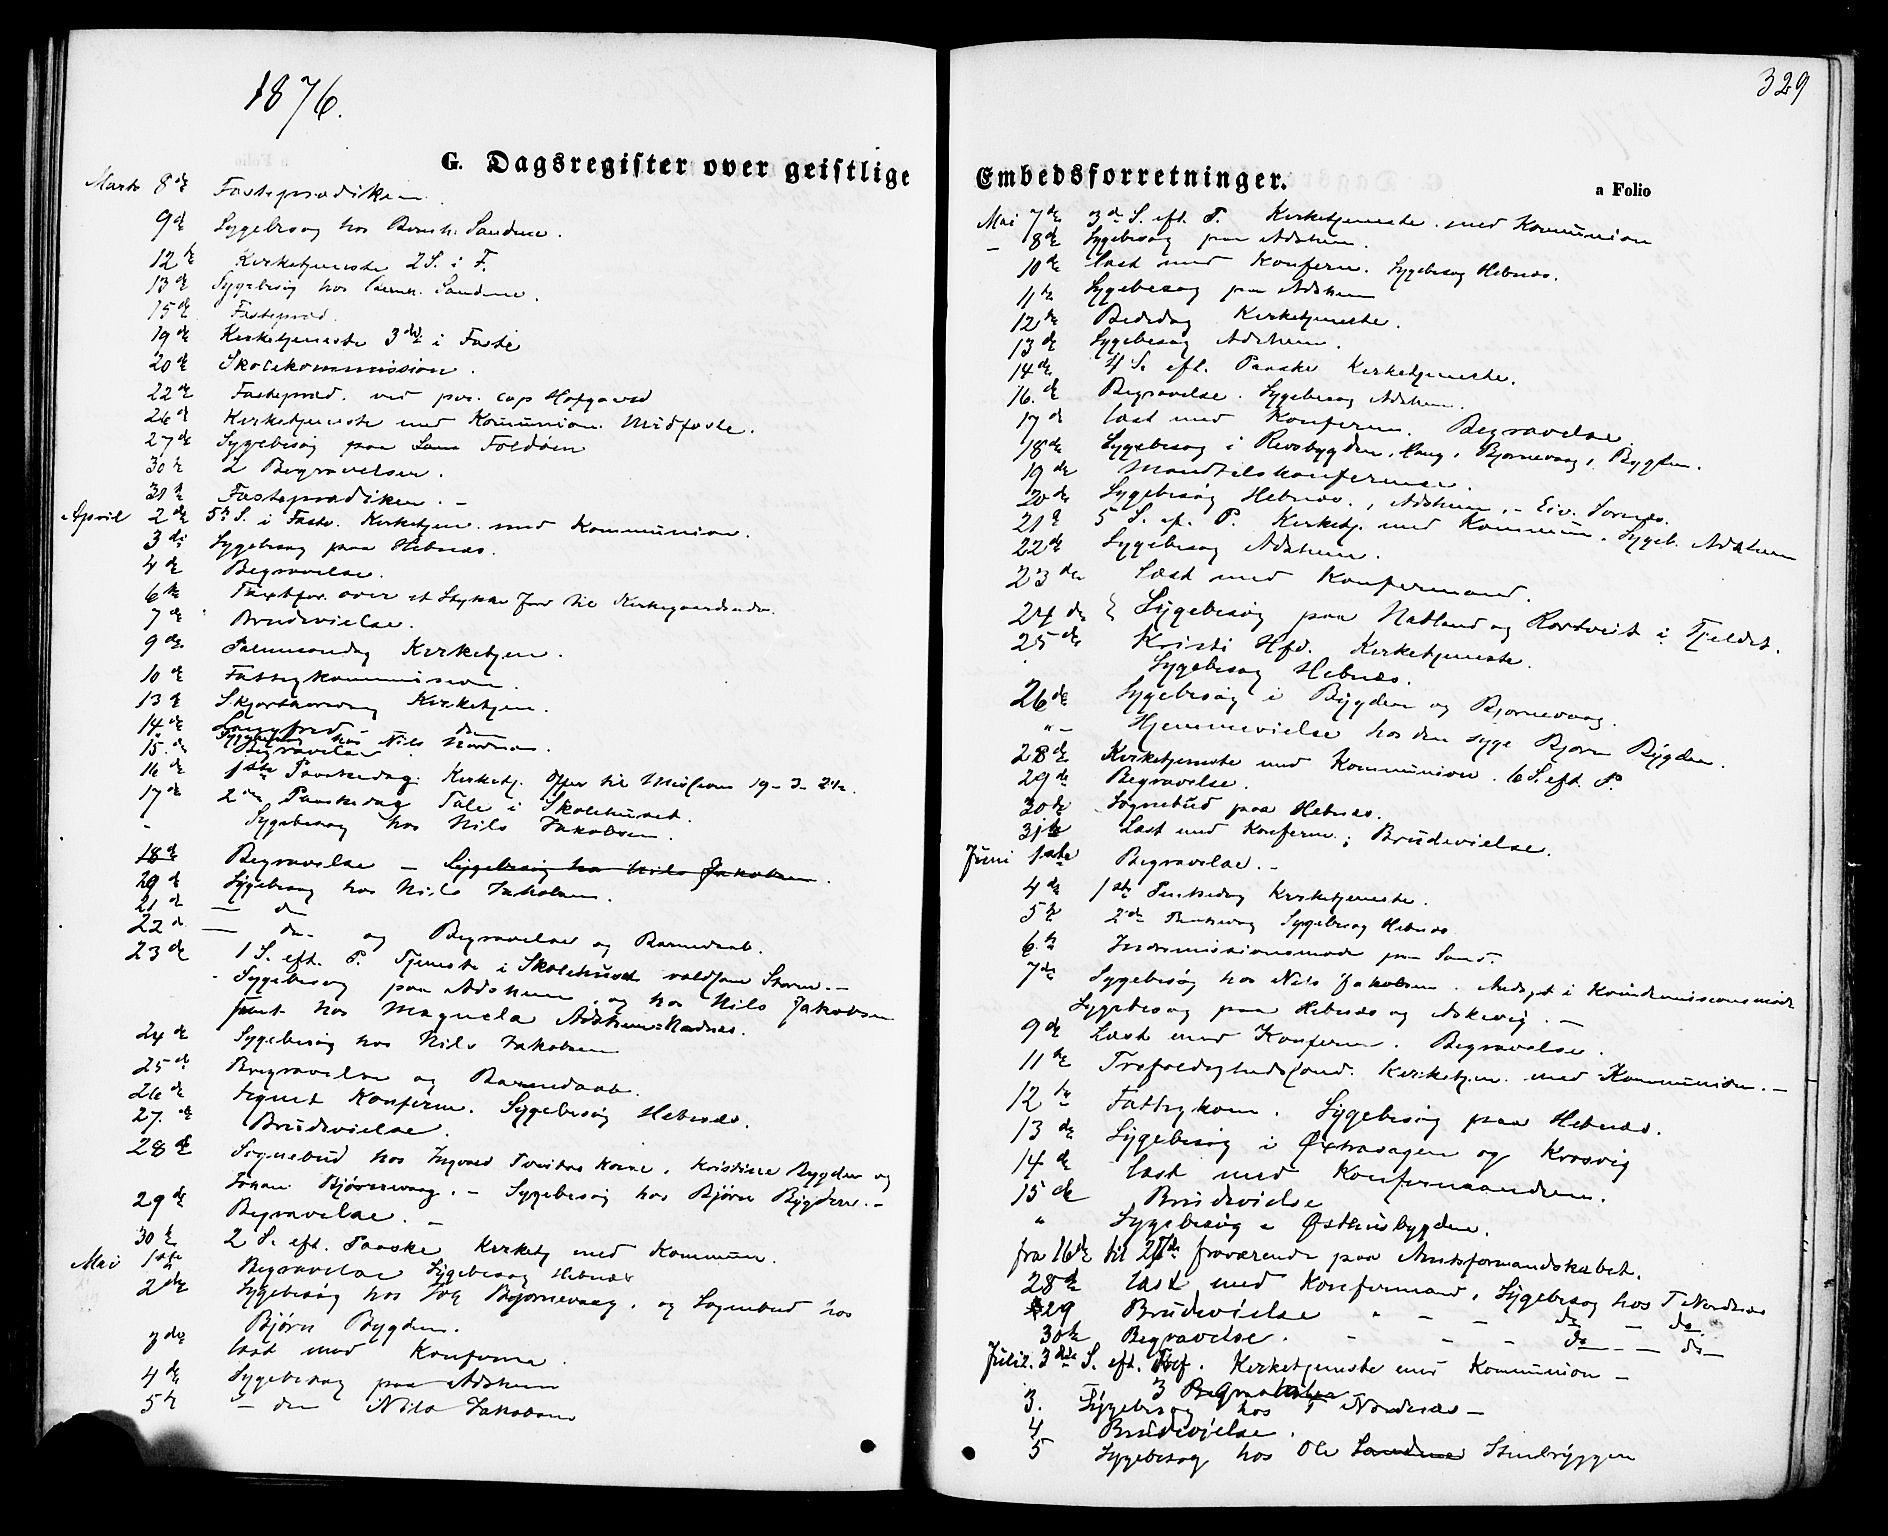 1876.
G. Dagsregister over geistlige
Marts 8de Fasteprædiken.
9de Sygebesøg hos Sandene.
12te Kirketjeneste 2 S. i F.
13de Sygebesøg hos Sandene.
15de Fastepræd.
19de Kirketjeneste 3die i Faste
20de Skolekommission.
22de Fastepræd. ved pers. cap Hofgaard
26de Kirketjeneste med Kommunion. Midfaste.
27de Sygebesøg paa Foldøen
30te 2 Begravelser.
31te Fasteprædiken. –
April 2den 5te S. i Faste. Kirketjen. med Kommunion.
3die Sygebesøg paa Hebnæs.
4de Begravelse.
6te over et Stykke Jord til
7de Brudevielse.
9de Palmesøndag Kirketjen.
10de Fattigkommission.
13de Skjærthorsdag Kirketjen.
14de Langfred. – do –
" Sygebesøg hos Nils Nordnæs.
15de Begravelse
16de 1ste Paaskedag. Kirketj. Offer til Missionen 19 - 3 -
17de 2den Paaskedag Tale i Skolehuset.
- Sygebesøg hos Nils Jakobsen.
18de Begravelse – Sygebesøg hos Nils Jakobsen.
20de Sygebesøg hos Nils Jakobsen.
21de — do
22de — do – og Begravelse og Barnedaab.
23de 1 S. eft. P. Tjeneste i Skolehuset voldsom Storm. –
Sygebesøg paa Adsheim, og hos Nils Jakobsen
samt hos Magnela Adsheim-Nadnæs.
24de Sygebesøg hos Nils Jakobsen
25de Begravelse og Barnedaab.
26de Konferm. Sygebesøg Hebnæs.
27de Brudevielse.
28de Sognebud hos Ingvald Kone, Kristine Bygden og
Johan Bjørnevaag. – Sygebesøg hos Bjørn Bygden. –
29de Begravelse. –
30te 2 S. eft. Paaske Kirketj med Kommun.
Mai 1ste Begravelse Sygebesøg Hebnæs
2den Sygebesøg hos Bjørnevaag, og Sognebud hos
Bjørn Bygden.
3die læst med Konferma.
4de Sygebesøg paa Adsheim
5te – do Nils Jakobsen
329
Embedsforretninger.
a Folio
Mai 7de 3die S. eft. P. Kirketjeneste med Kommunion
– 8de Sygebesøg paa Adsheim.
10de læst med Konferm. Sygebesøg Hebnæs.
11te Sygebesøg paa Adsheim
12te Bededag Kirketjeneste.
13de Sygebesøg Adsheim.
14de 4 S. eft. Paaske Kirketjeneste.
16de Begravelse. Sygebesøg Adsheim.
17de læst med Konferm. Begravelse.
18de Sygebesøg i Bjørnevaag, Bygden.
19de Mandtalskonference.
20de Sygebesøg Hebnæs, Adsheim, –
21de 5 S. ef. P. Kirketj. med Kommun. Sygeb. Adsheim
22de Sygebesøg Adsheim.
23de Læst med Konfermand.
24de Sygebesøg paa Natland og Rortveit i Fjeldet.
25de Kristi Hfd. Kirketjeneste.
Sygebesøg Hebnæs.
26de Sygebesøg i Bygden og Bjørnevaag.
" – Hjemmevielse hos den syge Bjørn Bygden.
28de Kirketjeneste med Kommunion. 6 S. eft. P.
29de Begravelse.
30te Sognebud paa Hebnæs.
31te Læst med Konferm.; Brudevielse.
Juni 1ste Begravelse. –
4de 1ste Pintsedag Kirketjeneste.
5te 2den Pintsedag Sygebesøg Hebnæs
6te Indremissionsmøde paa Sand.
7de Sygebesøg hos Nils Jakobsen. Andagt i Kvindemissionsmøde
Sygebesøg paa Hebnæs og Askevig. –
9de Læst med Konferm. Begravelse.
11te Trefoldighedssønd. Kirketjen. med Kommunion. –
12te Fattigkom. Sygebesøg paa Hebnæs.
13de Sygebesøg i og Krosvig
14de læst med Konfermanderne.
15de Brudevielse
" Sygebesøg i Østhusbygden.
fra 16de til 26de fraværende paa Amtsformandskabet.
28de læst med Konfermand, Sygebesøg hos T Nordnæs
29 Brudevielse " – – do – do.
30te Begravelse. – – – do – – do –
Juli 2. 3die S. eft. Tref. Kirketjeneste med Kommunion –
3 Begravelser
3. Sygebesøg hos T Nordnæs –
4 Brudevielse.
5 Sygebesøg hos Ole Sandene Stenbryggen